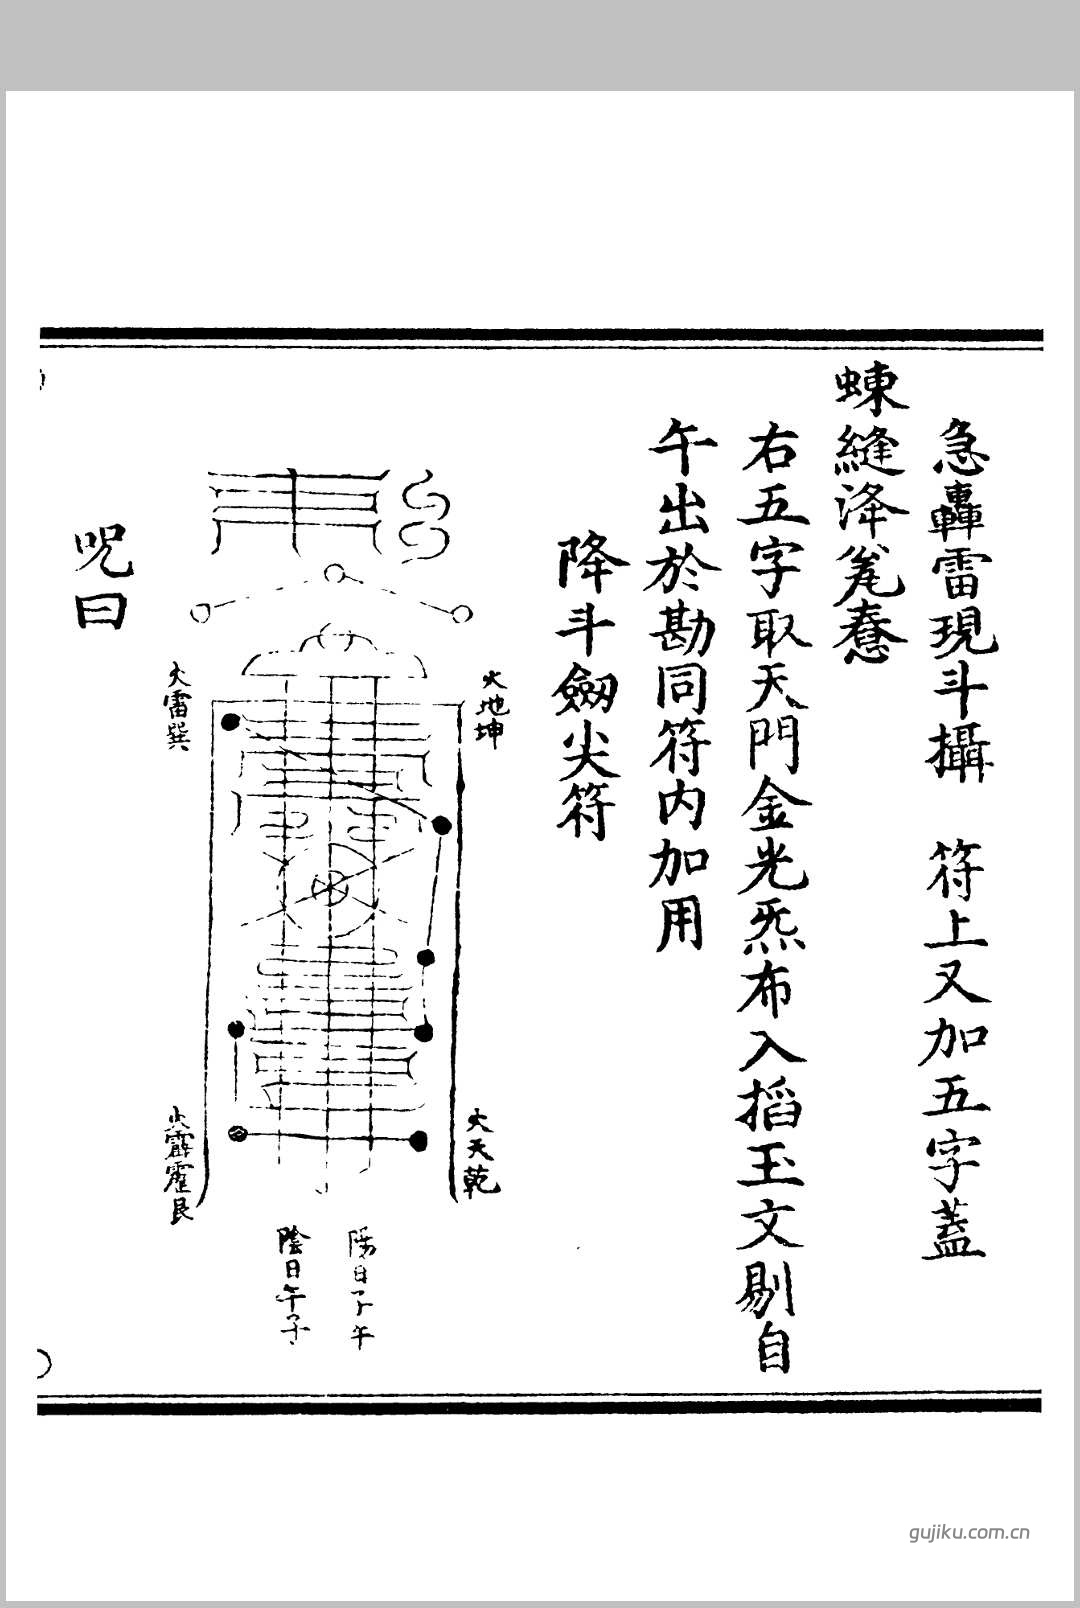 急轟雷現斗攝　符上又加五字蓋
蝀縫浲
右五字取天門金光炁布入搯玉文剔自
午出於勘同符内加用
降斗劔尖符
火地坤
火天乾
火雷巽
火霹靂艮
陽日子午
陰日午子
呪曰
gujiku.com.cn